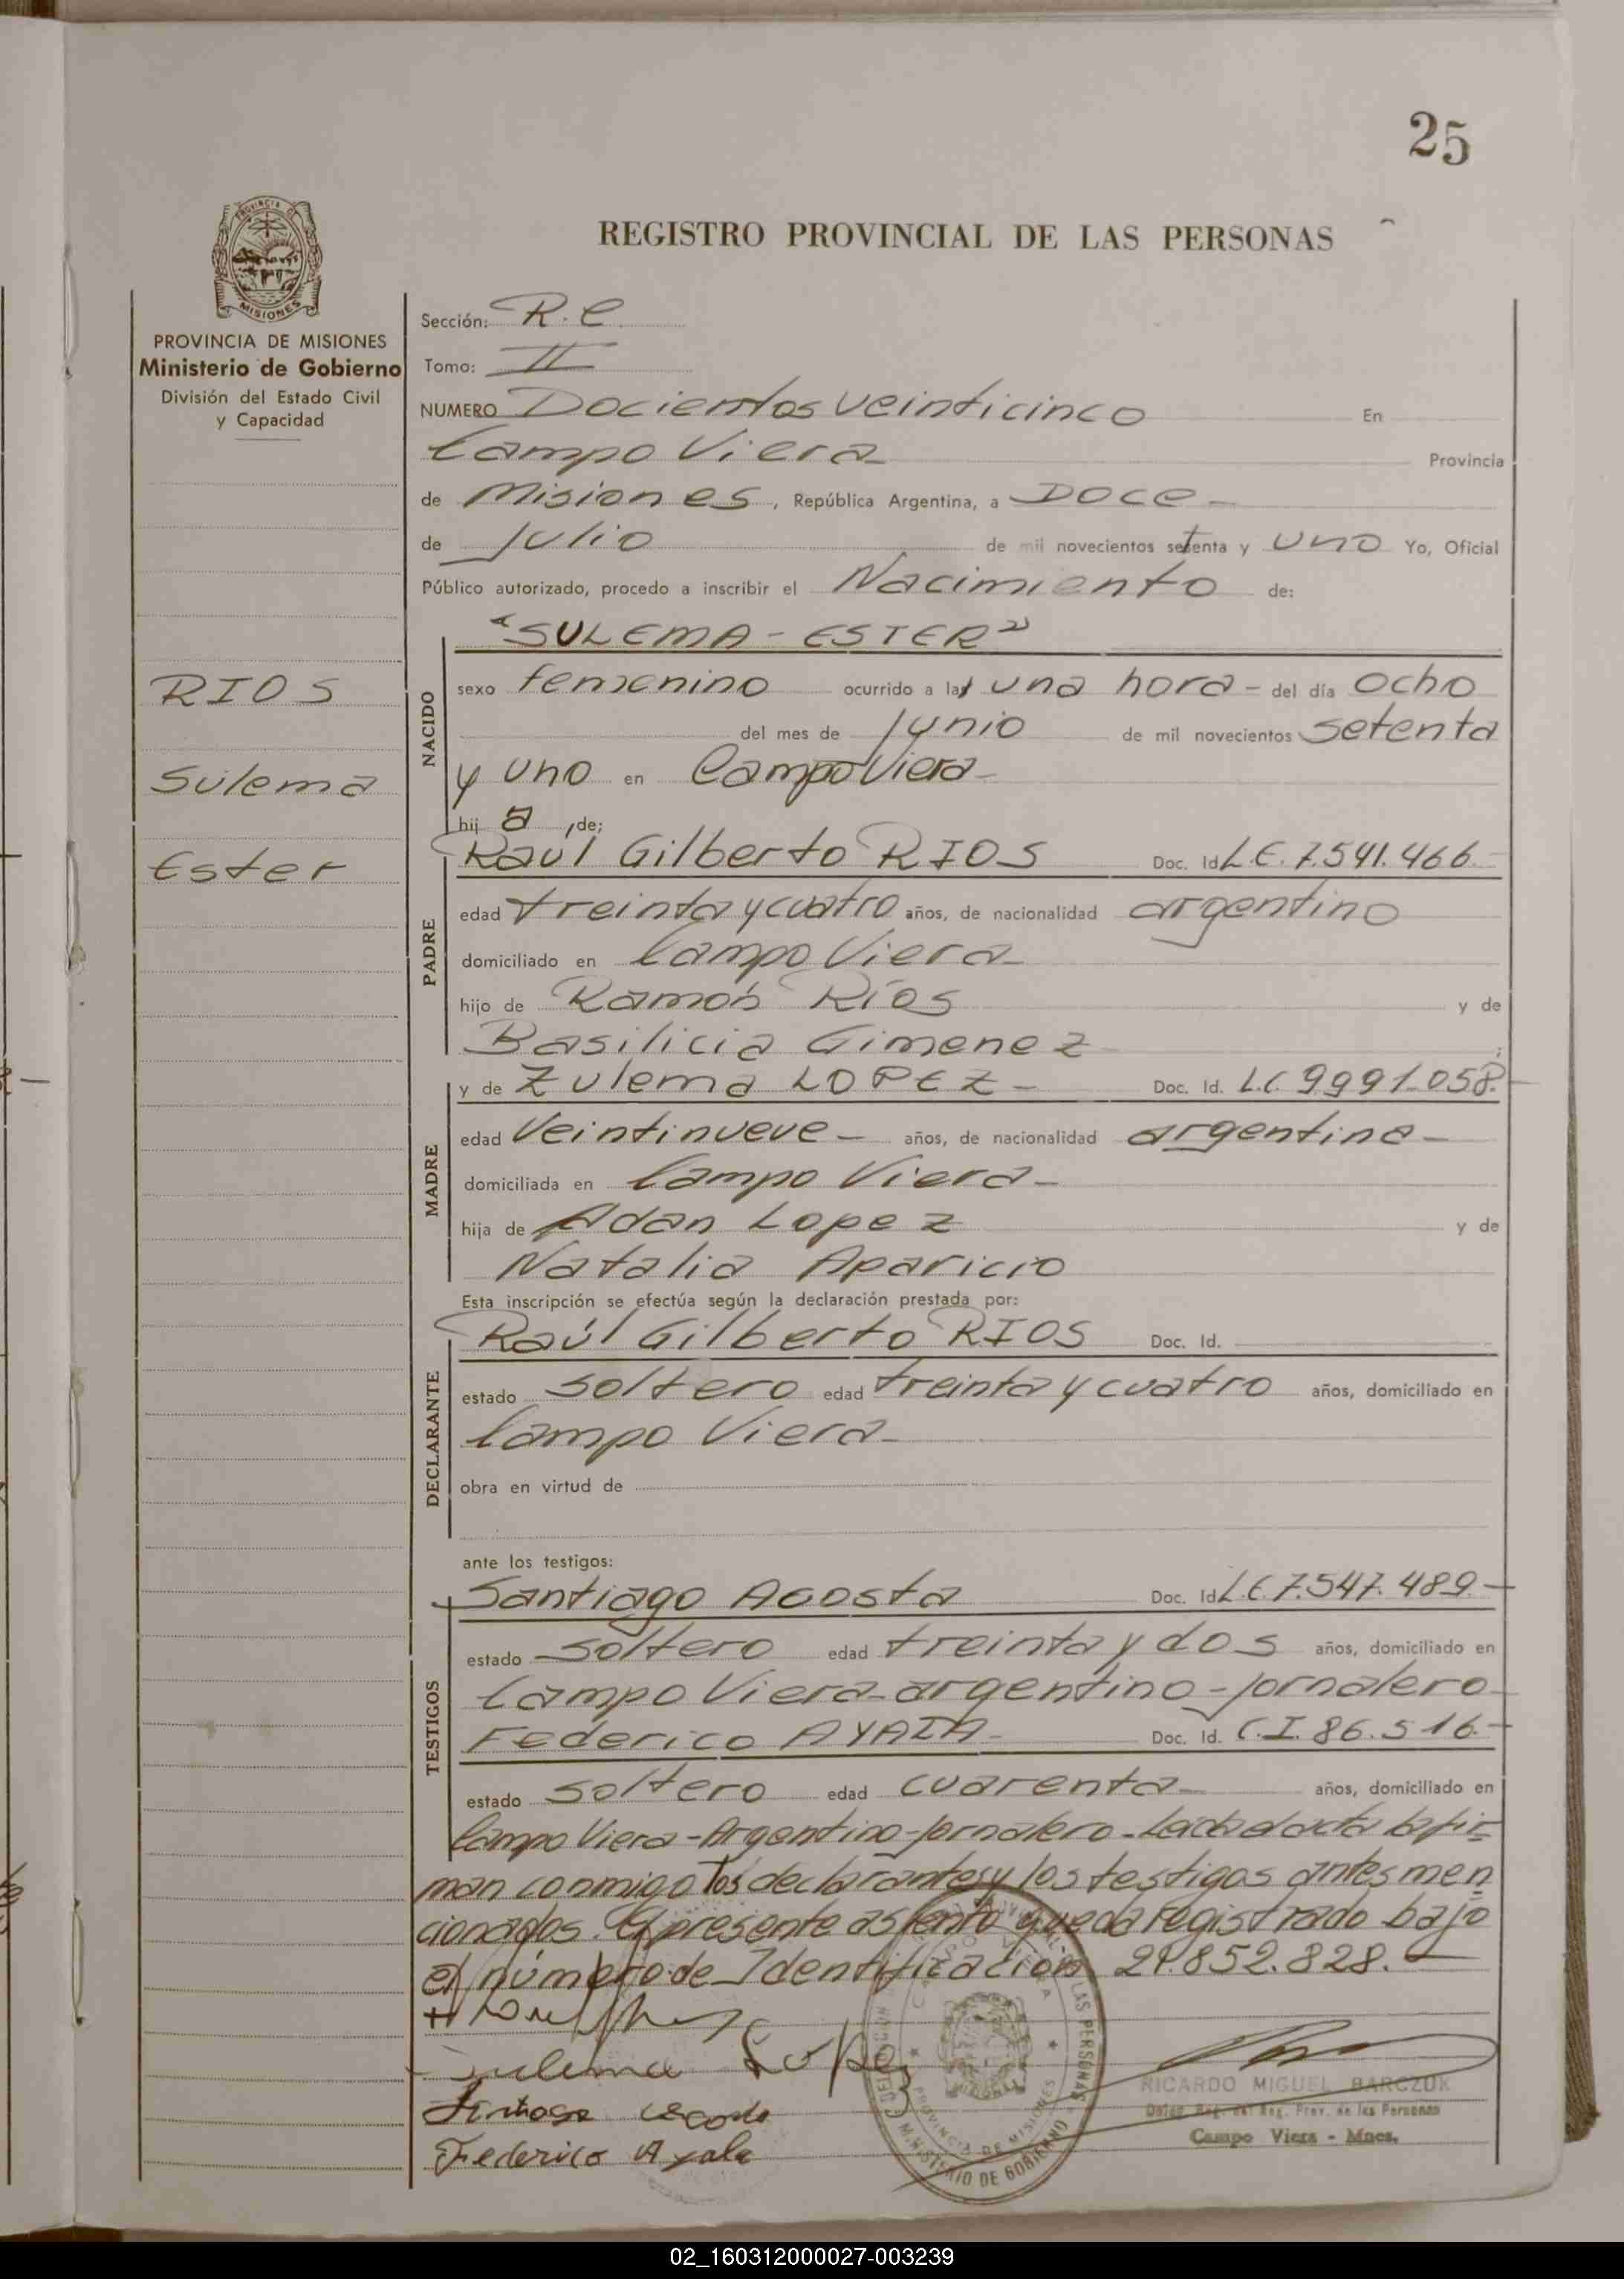 25
REGISTRO PROVINCIAL DE LAS PERSONAS
PROVINCIA DE
MISIONES
PROVINCIA DE MISIONES
Ministerio de Gobierno
División del Estado Civil
y Capacidad
RIOS
Sulema
Ester
Sección: R.C
Tomo: II
NUMERO Docientos veinticinco En
Campo Viera Provincia
de Misiones, República Argentina, a Doce
de Julio de mil novecientos setenta y uno Yo, Oficial
Público autorizado, procedo a inscribir el Nacimiento de:
NACIDO
"SULEMA - ESTER"
sexo femenino ocurrido a las una hora - del día ocho
del mes de Junio de mil novecientos setenta
y uno en Campo Viera
hij a, de;
PADRE
Raúl Gilberto RIOS Doc. Id L.E. 7.541.466
edad treinta y cuatro años, de nacionalidad argentino
domiciliado en Campo Viera
hijo de Ramón Ríos y de
Basilicia Gimenez
MADRE
y de Zulema LOPEZ - Doc. Id. L.C. 9991.058.
edad Veintinueve - años, de nacionalidad argentina -
domiciliada en Campo Viera -
hija de Adan Lopez y de
Natalia Aparicio
Esta inscripción se efectúa según la declaración prestada por:
DECLARANTE
Raúl Gilberto RIOS Doc. Id.
estado soltero edad treinta y cuatro años, domiciliado en
Campo Viera
obra en virtud de
ante los testigos:
TESTIGOS
Santiago Acosta Doc. Id L.E. 7.547.489.-
estado soltero edad treinta y dos años, domiciliado en
Campo Viera - argentino - jornalero
Federico AYALA - Doc. Id. C.I. 86.516 -
estado soltero edad cuarenta años, domiciliado en
Campo Viera - Argentino - jornalero - Leída el acta la fir=
man conmigo los declarantes y los testigos antes men
cionados. El presente asiento queda registrado bajo
el número de Identificación 21.852.828.
Sulema Lopez
Federico Ayala
MINISTERIO DE GOBIERNO
PROVINCIA DE MISIONES
RICARDO MIGUEL BARCZUK
Deleg. Reg. del Reg. Prov. de las Personas
Campo Viera - Mnes.
02_160312000027-003239